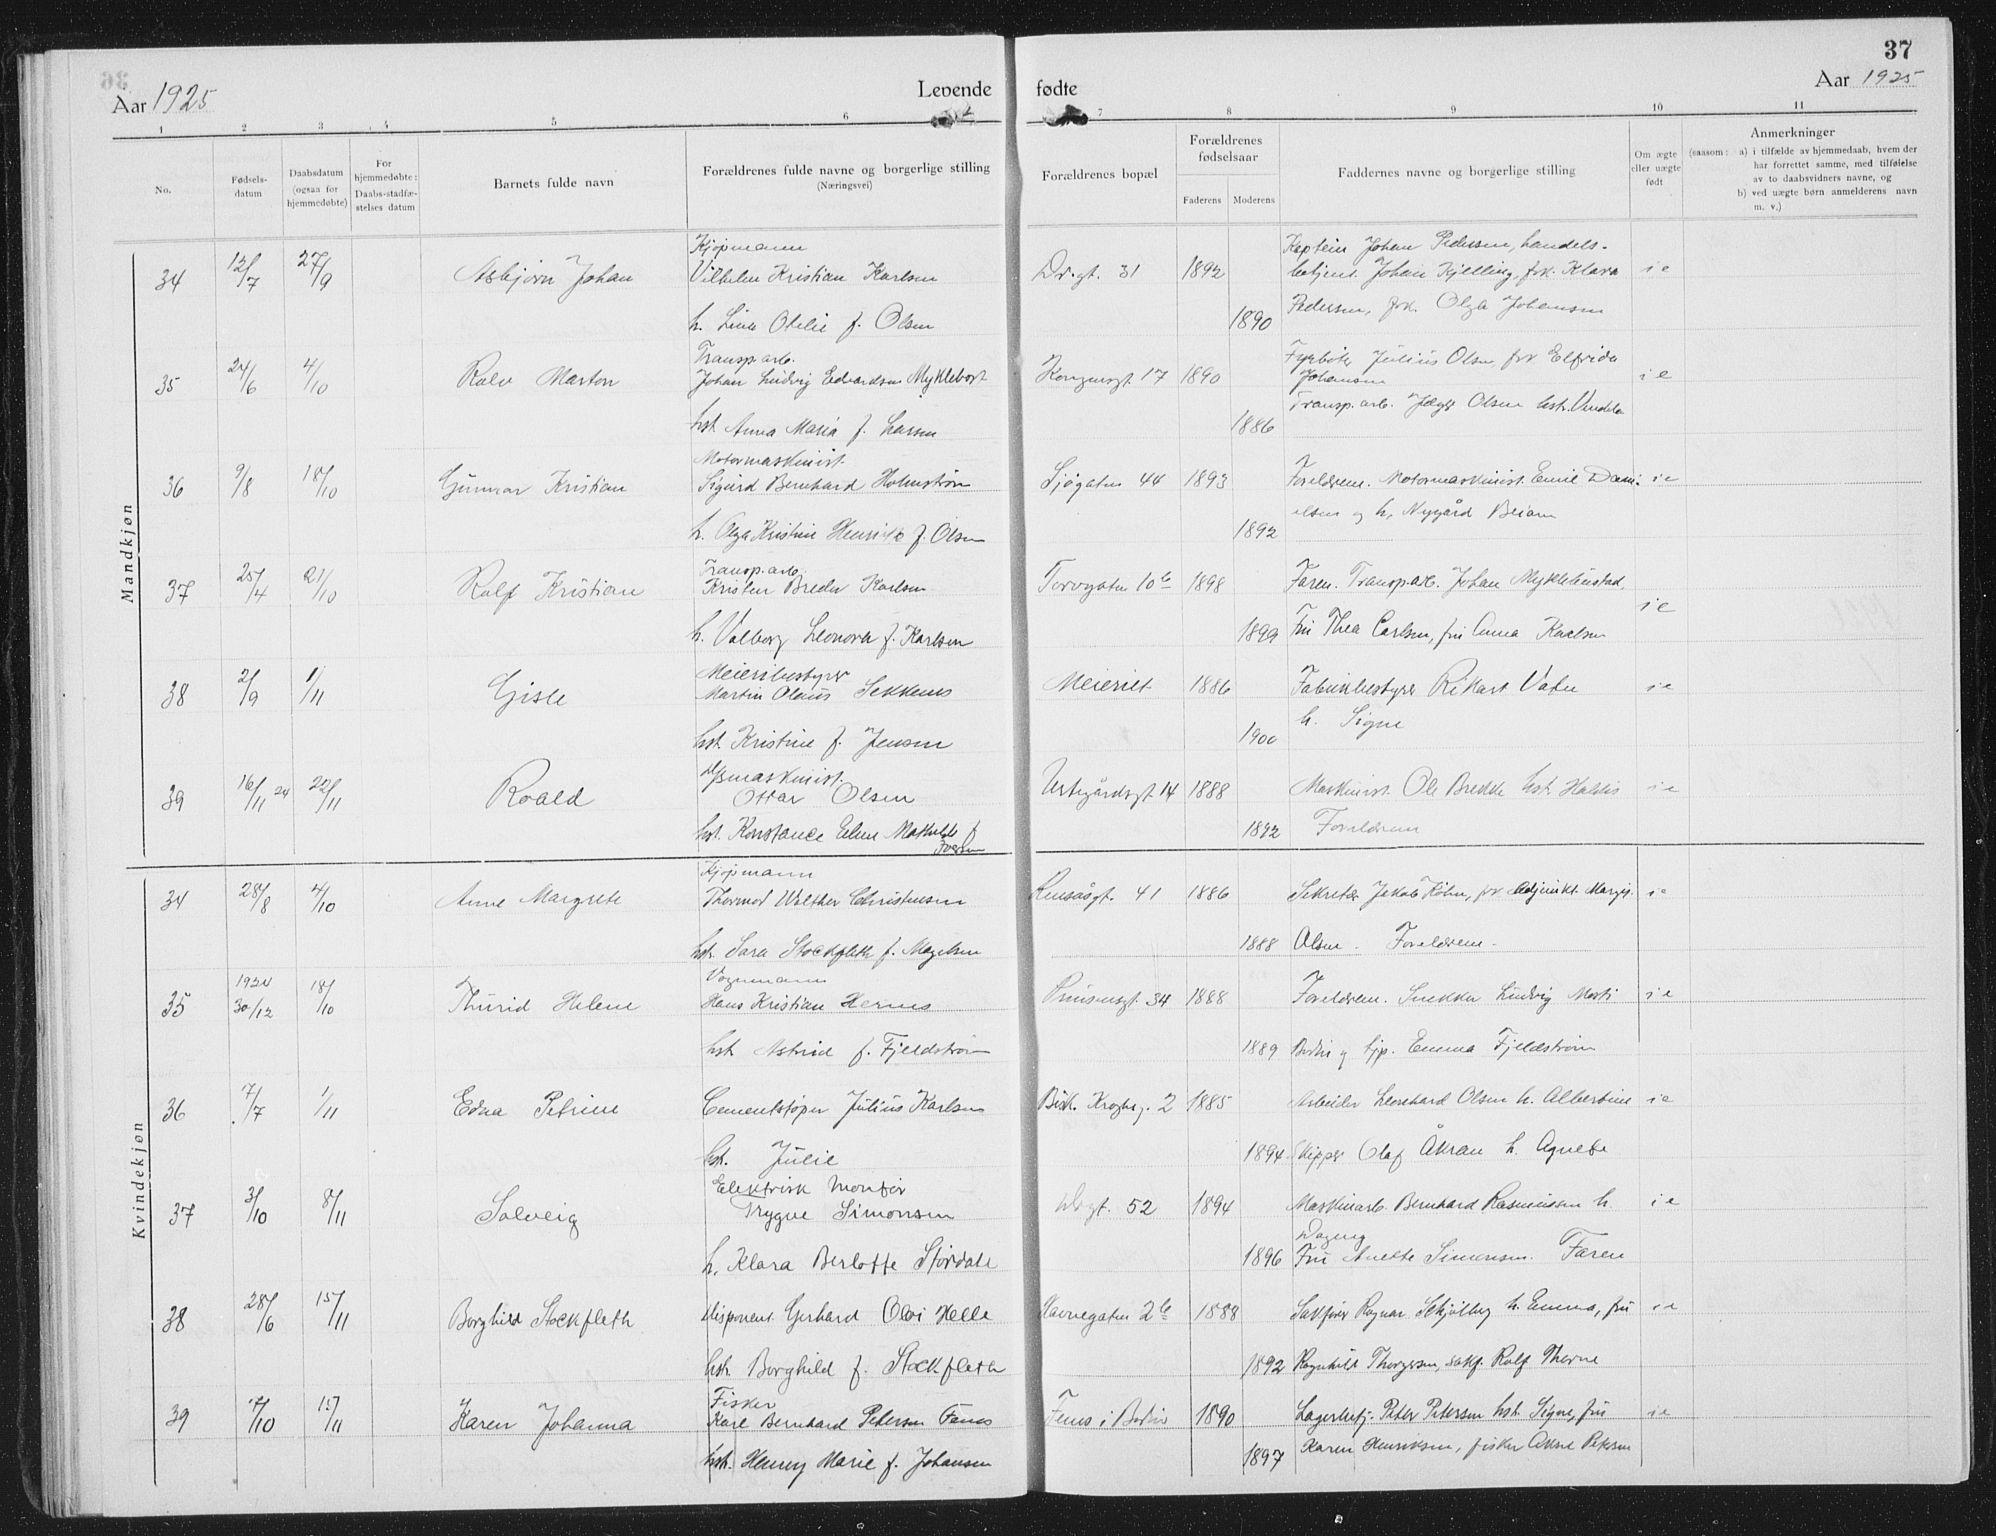 37
Aar 1925 Levende fødte Aar 1925
1 2 3 4 5 6 7 8 9 10 11
No.
Fødsels-
datum
Daabsdatum
(ogsaa for
hjemmedøbte)
For
hjemmedøbte:
Daabs-stadfæ-
stelses datum
Barnets fulde navn
Forældrenes fulde navne og borgerlige stilling
(Næringsvei)
Forældrenes bopæl
Forældrenes
fødselsaar
Faderens Moderens
Faddernes navne og borgerlige stilling
Om ægte
eller uægte
født
Anmerkninger
(saasom: a) i tilfælde av hjemmedaab, hvem der
har forrettet samme, med tilføielse
av to daabsvidners navne, og
b) ved uægte børn anmelderens navn
m. v.)
Mandkjøn
Kjøpmann Kaptein Johan Pedersen, handels-
34 12/7 27/9 Asbjørn Johan Vilhelm Kristian Karlsen Dr.gt. 31 1892 betjent Johan Kjelling, frk. Klara i e
h. Lina Otelie f. Olsen 1890 Pedersen, frk. Olga Johansen
Transp.arb. Fyrbøter Julius Olsen, frk Elfrida
35 24/6 4/10 Rolv Marton Johan Ludvig Edvardsen Myklebost Kongensgt. 17 1890 Johansen i e
Transp. arb. Olsen hst. Vendela
hst. Anna Maria f. Larsen 1886
Motormaskinist
36 9/8 18/10 Gunnar Kristian Sigurd Bernhard Holmstrøm Sjøgaten 44 1893 Foreldrene. Motormaskinist Emil Dani- i e
h. Olga Kristine Henrikke f. Olsen 1892 elsen og h. Nygård Beiarn
Transp.arb.
37 25/4 21/10 Rolf Kristian Kristen Breder Karlsen Torvgaten 10 b 1898 Faren. Transp.arb. Johan Myklebustad, i e
h. Valborg Leonora f. Karlsen 1899 Fru Thea Carlsen, fru Anna Karlsen
Meieribestyrer
38 2/9 1/11 Gisle Martin Olaus Sekkenes Meieriet 1886 Fabrikbestyrer Rikart Vatn i e
hst. Kristine f. Jensen 1900 h. Signe
D/smaskinist
39 16/11 24 22/11 Roald Ottar Olsen 14 1888 Maskinist Ole Bredek hst. Haldis i e
hst. Konstance Elen Mathilde f 1892 Foreldrene
Iversen
Kvindekjøn
Kjøpmann
34 28/8 4/10 Anne Margrete Thormod Walther Christensen Rensåsgt. 41 1886 Sekretær Jakob Køhn, frk Adjunkt Margit i e
hst. Sara Stockfleth f. Magelsen 1888 Olsen. Foreldrene.
1924 Vognmann
35 30/12 18/10 Thurid Helene Hans Kristian Hernes Prinsensgt. 34 1888 Foreldrene. Snekker Ludvig Morti i e
hst. Astrid f. Fjeldstrøm 1889 Bodin og tjp. Emma Fjeldstrøm
36 7/7 1/11 Edna Petrine Cementstøper Julius Karlsen Bisk. Kroghsg. 2 1885 Arbeider Leonhard Olsen h. Albertine i e
hst. Julie 1894 Skipper Olaf Åkran h. Agnete
Elektrisk montør
37 3/10 8/11 Solveig Trygve Simonsen Drgt. 52 1894 Maskinarb. Bernhard Rasmussen h. i e
Dagny
h. Klara Berlotte Størdale 1896 Fru Anette Simonsen. Faren
38 28/6 15/11 Borghild Stockfleth Disponent Gerhard Olvi Helle Havnegaten 2 b 1888 Sakfører Ragnar Schjølberg h. Emma, fru i e
hst. Borghild f. Stockfleth 1892 Ragnhild Thorgersen, sakf. Rolf Thorne
Fisker
39 7/10 15/11 Karen Johanna Karl Bernhard Petersen Fenes Fenes i Bodin 1890 Lagerbetj. Peter Petersen hst. Signe, fru i e
hst. Henny Marie f. Johansen 1897 Karen Henriksen, fisker Arne Petersen